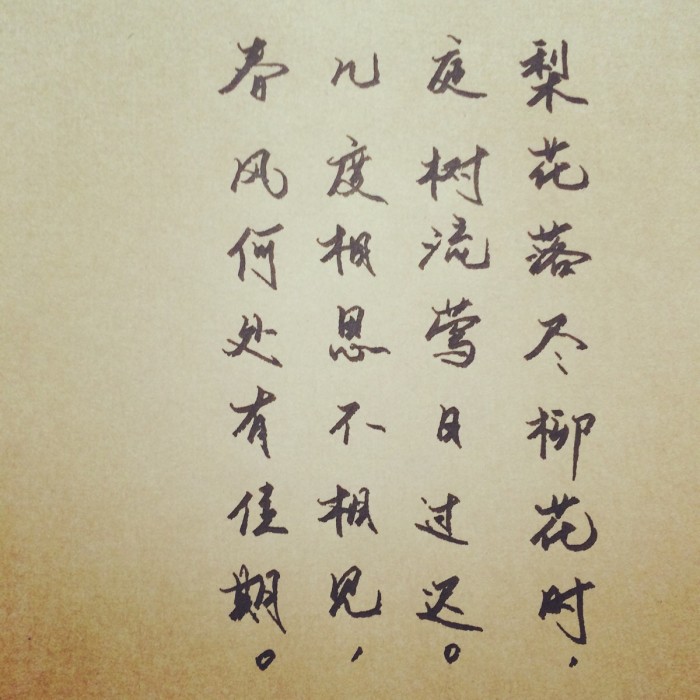 梨花落尽柳花时，
庭树流莺日过迟。
几度相思不相见，
春风何处有佳期。